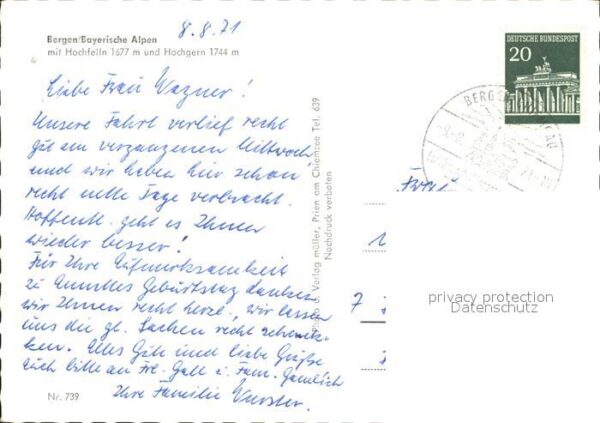 8.8.71
Bergen/Bayerische Alpen
mit Hochfelln 1677 m und Hochgern 1744 m
Liebe Frau Wagner!
Unsere Fahrt verlief recht
gut am vergangenen Mittwoch
und wir haben hier schon
recht nette Tage verbracht.
Hoffentl. geht es Ihnen
wieder besser!
Für Ihre Aufmerksamkeit
zu Geburtstag danken
wir Ihnen recht herzl., wir lassen
uns die gt. Sachen recht schmek-
ken. Alles Gute und liebe Grüße
auch bitte an Frl. Gall u. Fam.
Ihre Familie
Nr. 739
Verlag müller, Prien am Chiemsee Tel. 639
Nachdruck verboten
DEUTSCHE BUNDESPOST
20
BERGEN
7
privacy protection
Datenschutz